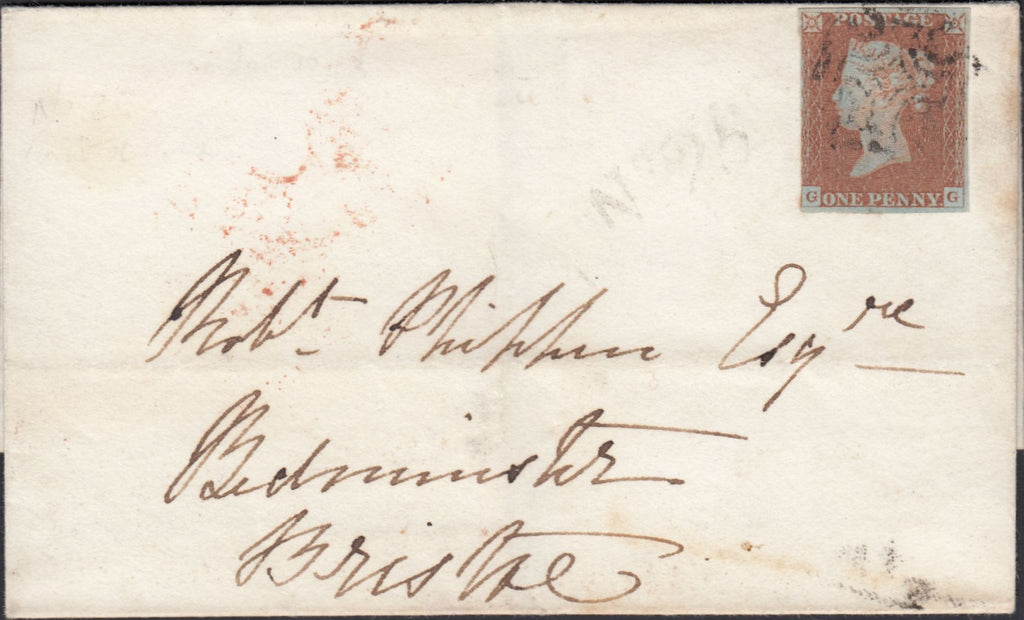 POSTAGE
G ONE PENNY. G
Robt Phippen Esqre
Bedminster
Bristol